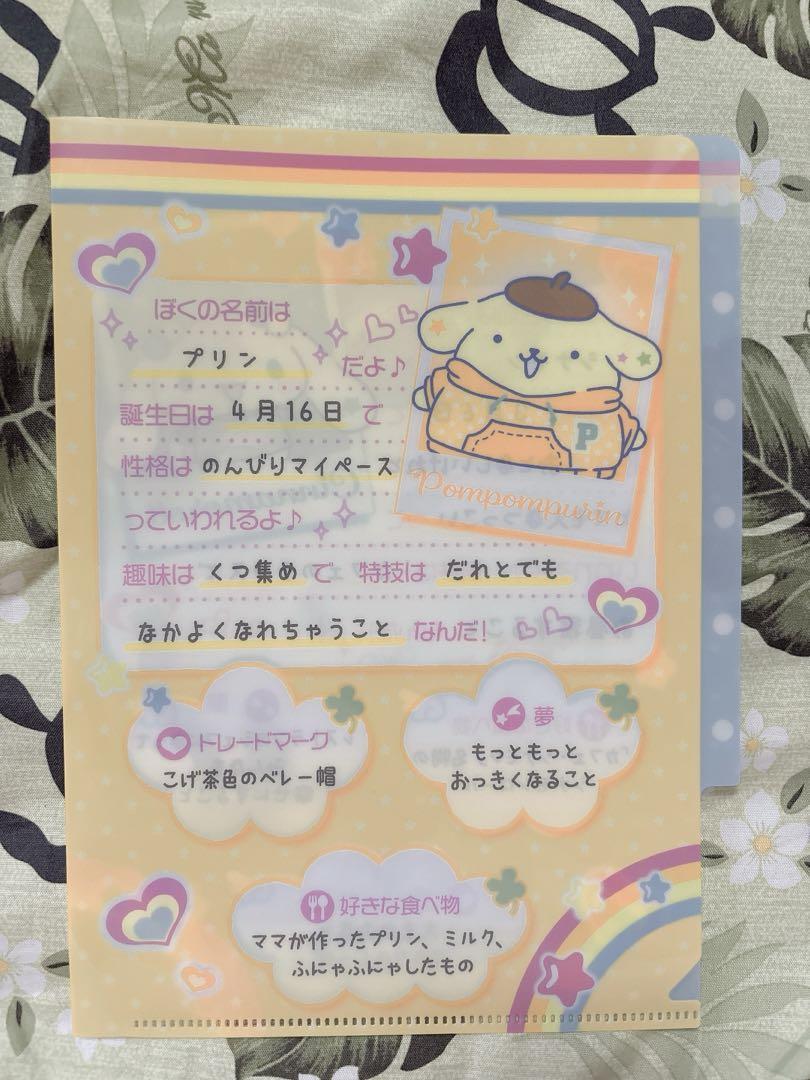 ぼくの名前は
プリン だよ♪
誕生日は 4月16日 で
性格は のんびりマイペース
っていわれるよ♪
趣味は くつ集め で 特技は だれとでも
なかよくなれちゃうこと なんだ!
P
Pompompurin
トレードマーク
こげ茶色のベレー帽
夢
もっともっと
おっきくなること
好きな食べ物
ママが作ったプリン、ミルク、
ふにゃふにゃしたもの